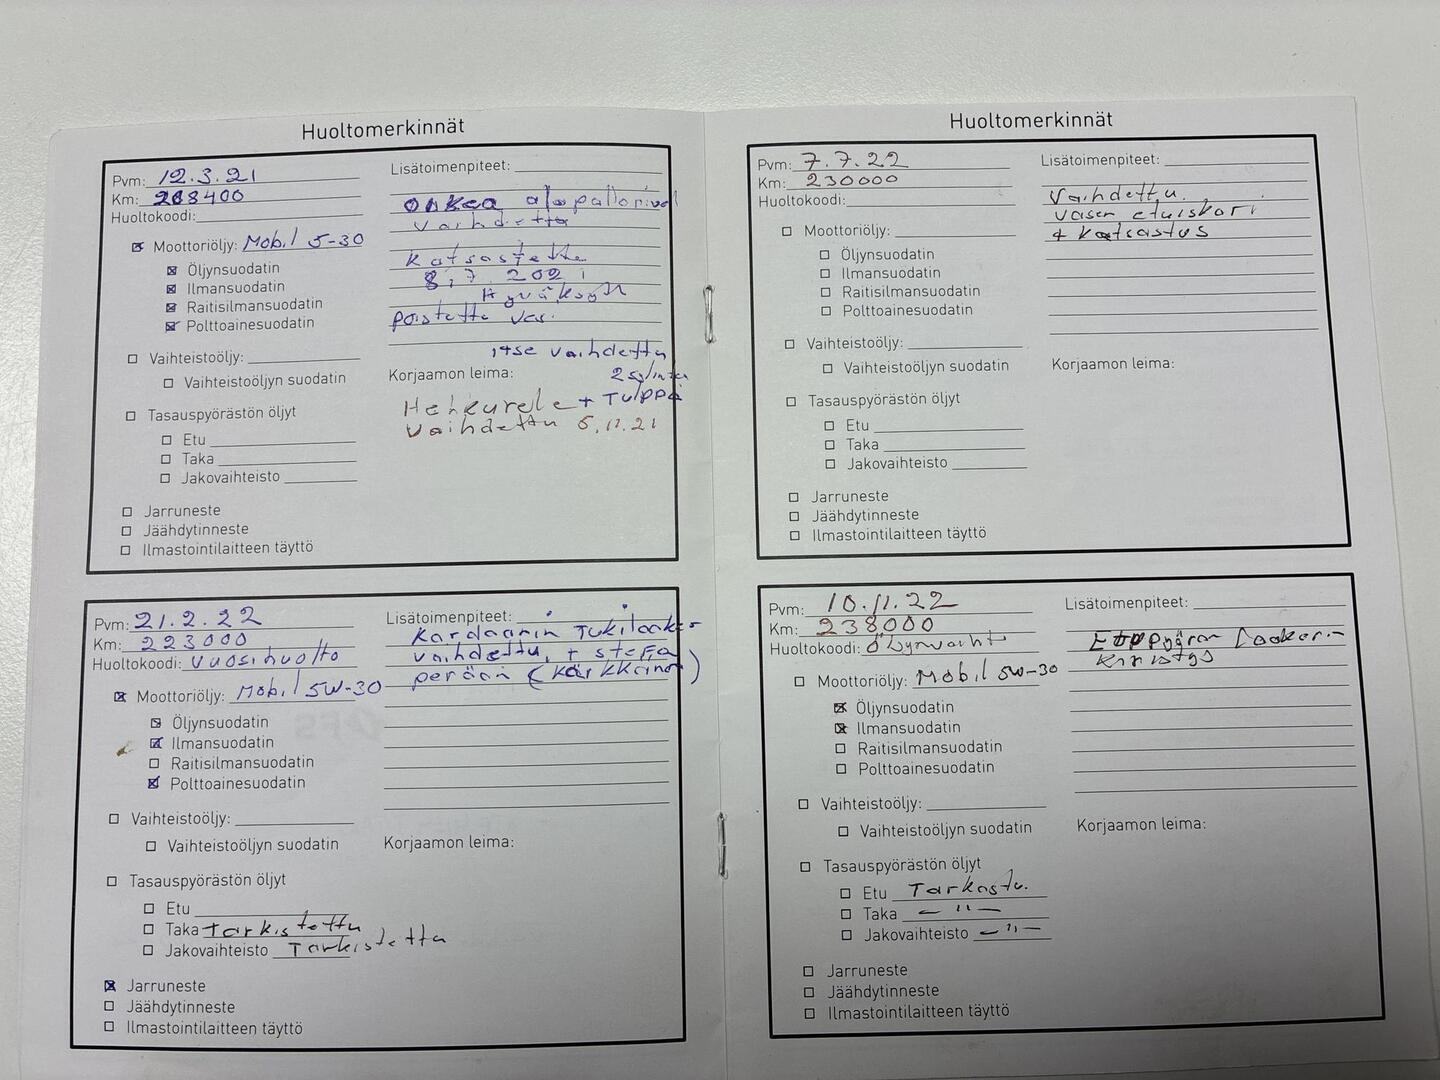 Huoltomerkinnät
Pvm: 12.3.21
Km: 208400
Huoltokoodi:
Moottoriöljy: Mobil 5-30
Öljynsuodatin
Ilmansuodatin
Raitisilmansuodatin
Polttoainesuodatin
Vaihteistoöljy:
Vaihteistoöljyn suodatin
Tasauspyörästön öljyt
Etu
Taka
Jakovaihteisto
Jarruneste
Jäähdytinneste
Ilmastointilaitteen täyttö
Lisätoimenpiteet:
oikea alapallonivel
vaihdettu
Katsastettu
8.7.2021
Hyväksytt
poistettu ves.
itse vaihdettu
Korjaamon leima:
Hehkurele + Tulppa
vaihdettu 5.11.21
Pvm: 21.2.22
Km: 223000
Huoltokoodi: Vuosihuolto
Moottoriöljy: Mobil 5W-30
Öljynsuodatin
Ilmansuodatin
Raitisilmansuodatin
Polttoainesuodatin
Vaihteistoöljy:
Vaihteistoöljyn suodatin
Tasauspyörästön öljyt
Etu
Taka Tarkistettu
Jakovaihteisto Tarkistettu
Jarruneste
Jäähdytinneste
Ilmastointilaitteen täyttö
Lisätoimenpiteet:
Kardaanin Tukilaakeri
vaihdettu, + steffa
perään (Kärkkäinen)
Korjaamon leima:
Huoltomerkinnät
Pvm: 7.7.22
Km: 230000
Huoltokoodi:
Moottoriöljy:
Öljynsuodatin
Ilmansuodatin
Raitisilmansuodatin
Polttoainesuodatin
Vaihteistoöljy:
Vaihteistoöljyn suodatin
Tasauspyörästön öljyt
Etu
Taka
Jakovaihteisto
Jarruneste
Jäähdytinneste
Ilmastointilaitteen täyttö
Lisätoimenpiteet:
Vaihdettu
vasen etuiskari
+ katsastus
Korjaamon leima:
Pvm: 10.11.22
Km: 238000
Huoltokoodi: Öljynvaiht
Moottoriöljy: Mobil 5W-30
Öljynsuodatin
Ilmansuodatin
Raitisilmansuodatin
Polttoainesuodatin
Vaihteistoöljy:
Vaihteistoöljyn suodatin
Tasauspyörästön öljyt
Etu Tarkastu.
Taka – " –
Jakovaihteisto – " –
Jarruneste
Jäähdytinneste
Ilmastointilaitteen täyttö
Lisätoimenpiteet:
Etupyörän Laakerin
Kiristys
Korjaamon leima: